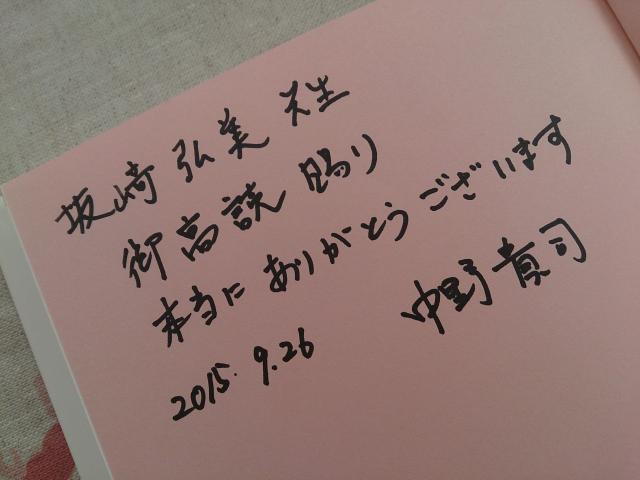 坂崎 弘美 先生
御高読 賜り
本当に ありがとう ございます
2015. 9.26 中野貴司